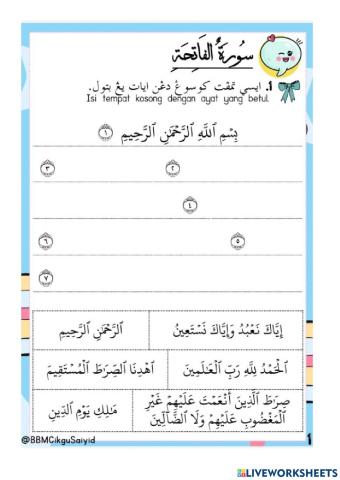 سُورَةُ الفَاتِحَةِ
1. ايسي تمڤت كوسوڠ دڠن ايات يڠ بتول.
Isi tempat kosong dengan ayat yang betul.
بِسْمِ اللَّهِ الرَّحْمَٰنِ الرَّحِيمِ ١
٢ ٣
٤
٥ ٦
٧
إِيَّاكَ نَعْبُدُ وَإِيَّاكَ نَسْتَعِينُ الرَّحْمَٰنِ الرَّحِيمِ
الْحَمْدُ لِلَّهِ رَبِّ الْعَالَمِينَ اهْدِنَا الصِّرَاطَ الْمُسْتَقِيمَ
صِرَاطَ الَّذِينَ أَنْعَمْتَ عَلَيْهِمْ غَيْرِ
الْمَغْضُوبِ عَلَيْهِمْ وَلَا الضَّالِّينَ مَالِكِ يَوْمِ الدِّينِ
@BBMCikguSaiyid 1
LIVEWORKSHEETS